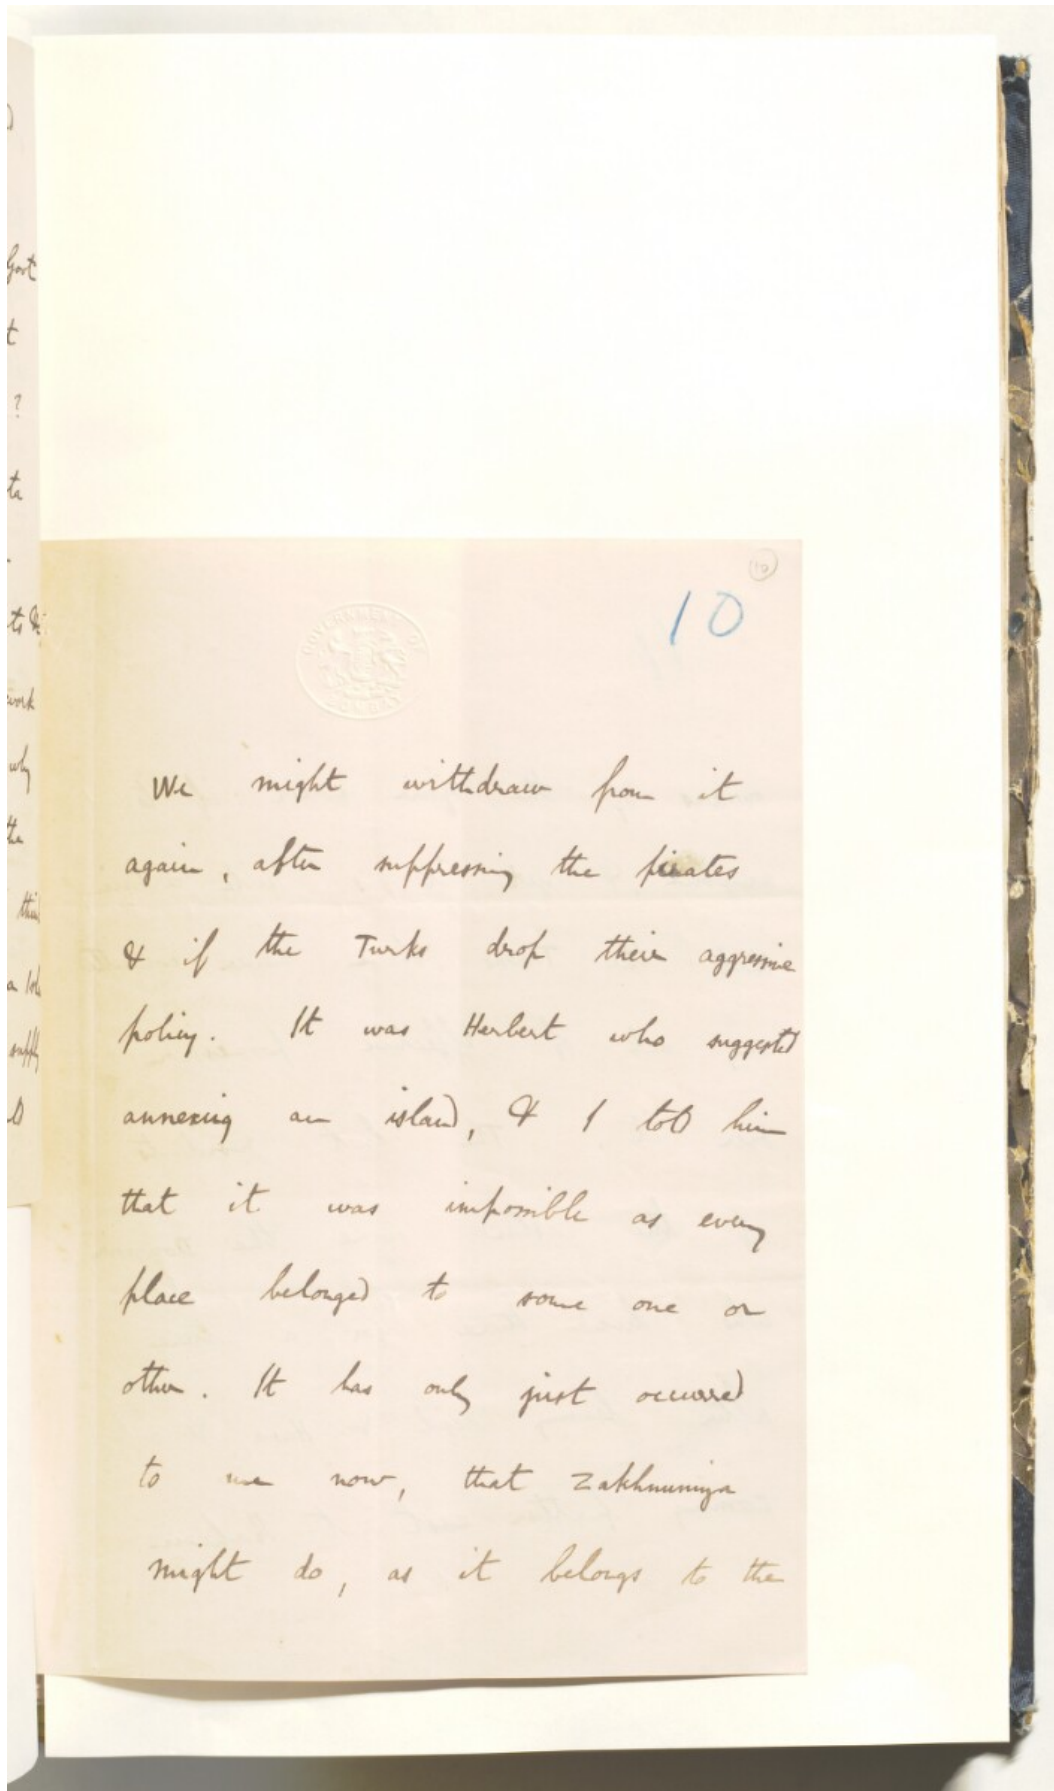 Govt
t
?
ta
ts &
work
why
the
thin
supply
10
10
GOVERNMENT OF
BOMBAY
We might withdraw from it
again, after suppressing the pirates
& if the Turks drop their aggressive
policy. It was Herbert who suggested
annexing an island, & I told him
that it was impossible as every
place belonged to some one or
other. It has only just occurred
to me now, that Zakhnuniya
might do, as it belongs to the